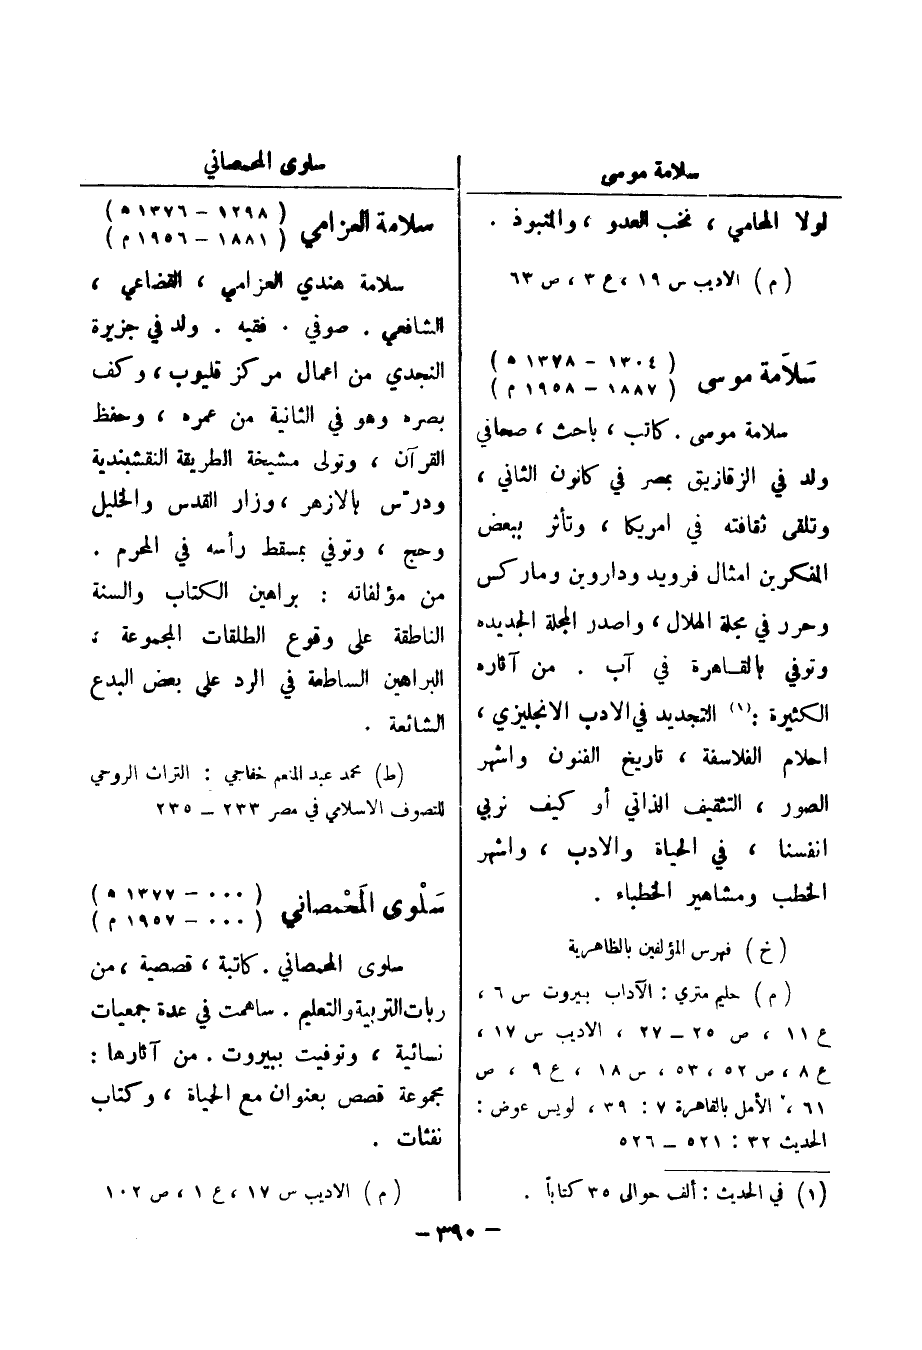 سلامة موسى
لولا المحامي ، نخب العدو ، والنبوذ .
( م ) الاديب س ١٩ ، ع ٣ ، ص ٦٣
سَلاَمة موسى ( ١٣٠٤ – ١٣٧٨ ه )
( ١٨٨٧ – ١٩٥٨ م )
سلامة موسى . كاتب ، باحث ، صحافي
ولد في الزقازيق بمصر في كانون الثاني ،
وتلقى ثقافته في امريكا ، وتأثر ببعض
المفكرين امثال فرويد وداروين وماركس
وحرر في مجلة الهلال ، واصدر المجلة الجديده
وتوفي بالقاهرة في آب . من آثاره
الكثيرة :(١) التجديد في الادب الانجليزي ،
احلام الفلاسفة ، تاريخ الفنون واشهر
الصور ، التثقيف الذاتي أو كيف نربي
انفسنا ، في الحياة والادب ، واشهر
الخطب ومشاهير الخطباء .
( خ ) فهرس المؤلفين بالظاهرية
( م ) حليم متري : الآداب بيروت س ٦ ،
ع ١١ ، ص ٢٥ – ٢٧ ، الاديب س ١٧ ،
ع ٨ ، ص ٥٢ ، ٥٣ ، س ١٨ ، ع ٩ ، ص
٦١ ، الأمل بالقاهرة ٧ : ٣٩ ، لويس عوض :
الحديث ٣٢ : ٥٢١ – ٥٢٦
(١) في الحديث : ألف حوالى ٣٥ كتاباً .
سلوى المحمصاني
سلامة العزامي ( ١٢٩٨ – ١٣٧٦ ه )
( ١٨٨١ – ١٩٥٦ م )
سلامة هندي العزامي ، القضاعي ،
الشافعي . صوفي . فقيه . ولد في جزيرة
النجدي من اعمال مركز قليوب ، وكف
بصره وهو في الثانية من عمره ، وحفظ
القرآن ، وتولى مشيخة الطريقة النقشبندية
ودرّس بالازهر ، وزار القدس والخليل
وحج ، وتوفي بمسقط رأسه في المحرم .
من مؤلفاته : براهين الكتاب والسنة
الناطقة على وقوع الطلقات المجموعة ،
البراهين الساطعة في الرد على بعض البدع
الشائعة .
(ط) محمد عبد المنعم خفاجي : التراث الروحي
للتصوف الاسلامي في مصر ٢٣٣ – ٢٣٥
سَلْوى المَحْمصاني ( ٠٠٠ – ١٣٧٧ ه )
( ٠٠٠ – ١٩٥٧ م )
سلوى المحمصاني . كاتبة ، قصصية ، من
ربات التربية والتعليم . ساهمت في عدة جمعيات
نسائية ، وتوفيت ببيروت . من آثارها :
مجموعة قصص بعنوان مع الحياة ، وكتاب
نفثات .
( م ) الاديب س ١٧ ، ع ١ ، ص ١٠٢
– ٣٩٠ –